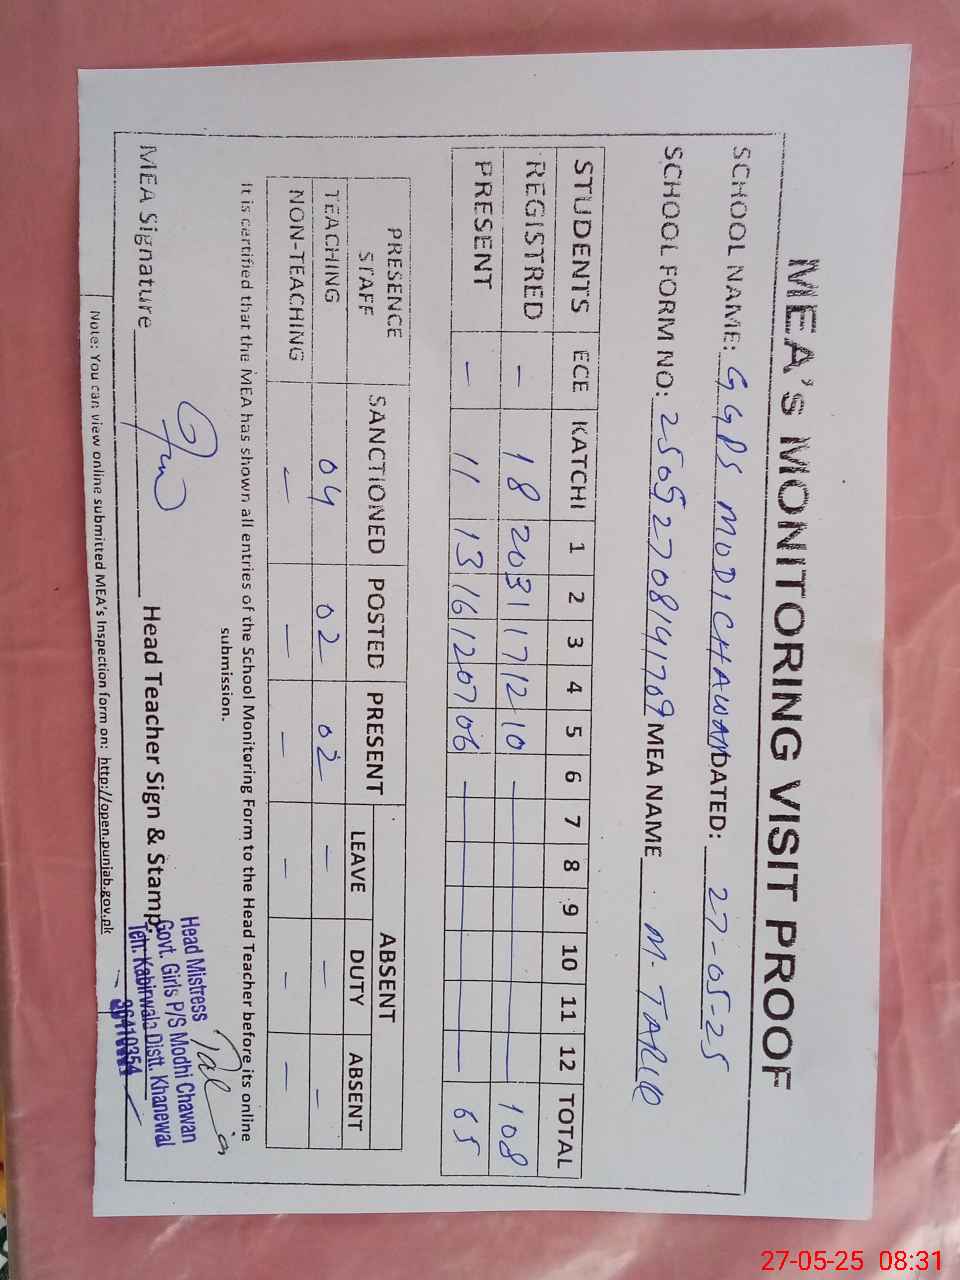 MEA'S MONITORING VISIT PROOF
SCHOOL NAME: GGPS MODICHAWAN DATED: 27-05-25
SCHOOL FORM NO: 25052708141709 MEA NAME M. TARIQ
STUDENTS ECE KATCHI 1 2 3 4 5 6 7 8 9 10 11 12 TOTAL
REGISTRED - 18 20 31 17 12 10 - 108
PRESENT - 11 13 16 12 07 06 - 65
PRESENCE STAFF SANCTIONED POSTED PRESENT ABSENT
LEAVE DUTY ABSENT
TEACHING 04 02 02 - - -
NON-TEACHING - - - - - -
It is certified that the MEA has shown all entries of the School Monitoring Form to the Head Teacher before its online
submission.
MEA Signature Head Teacher Sign & Stamp:
Head Mistress
Govt. Girls P/S Modhi Chawan
Teh. Kabirwala Distt. Khanewal
36410354
Note: You can view online submitted MEA's Inspection form on: http://open.punjab.gov.pk
27-05-25 08:31